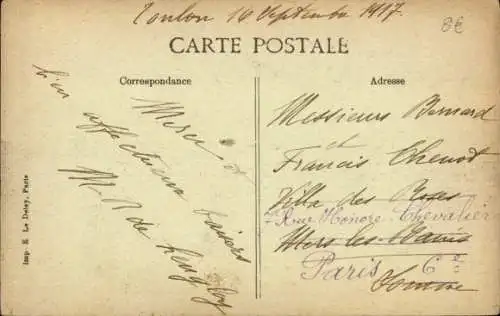 Toulon 16 Septembre 1917.
8€
CARTE POSTALE
Correspondance
Adresse
Merci et
bien affectueux baisers
M.
de
Messieurs Bernard
et
Francis Thenot
Villa des Roses
7 Rue Honoré Chevalier
Mers les Bains
Paris 6e
Somme
Imp. E. Le Deley, Paris